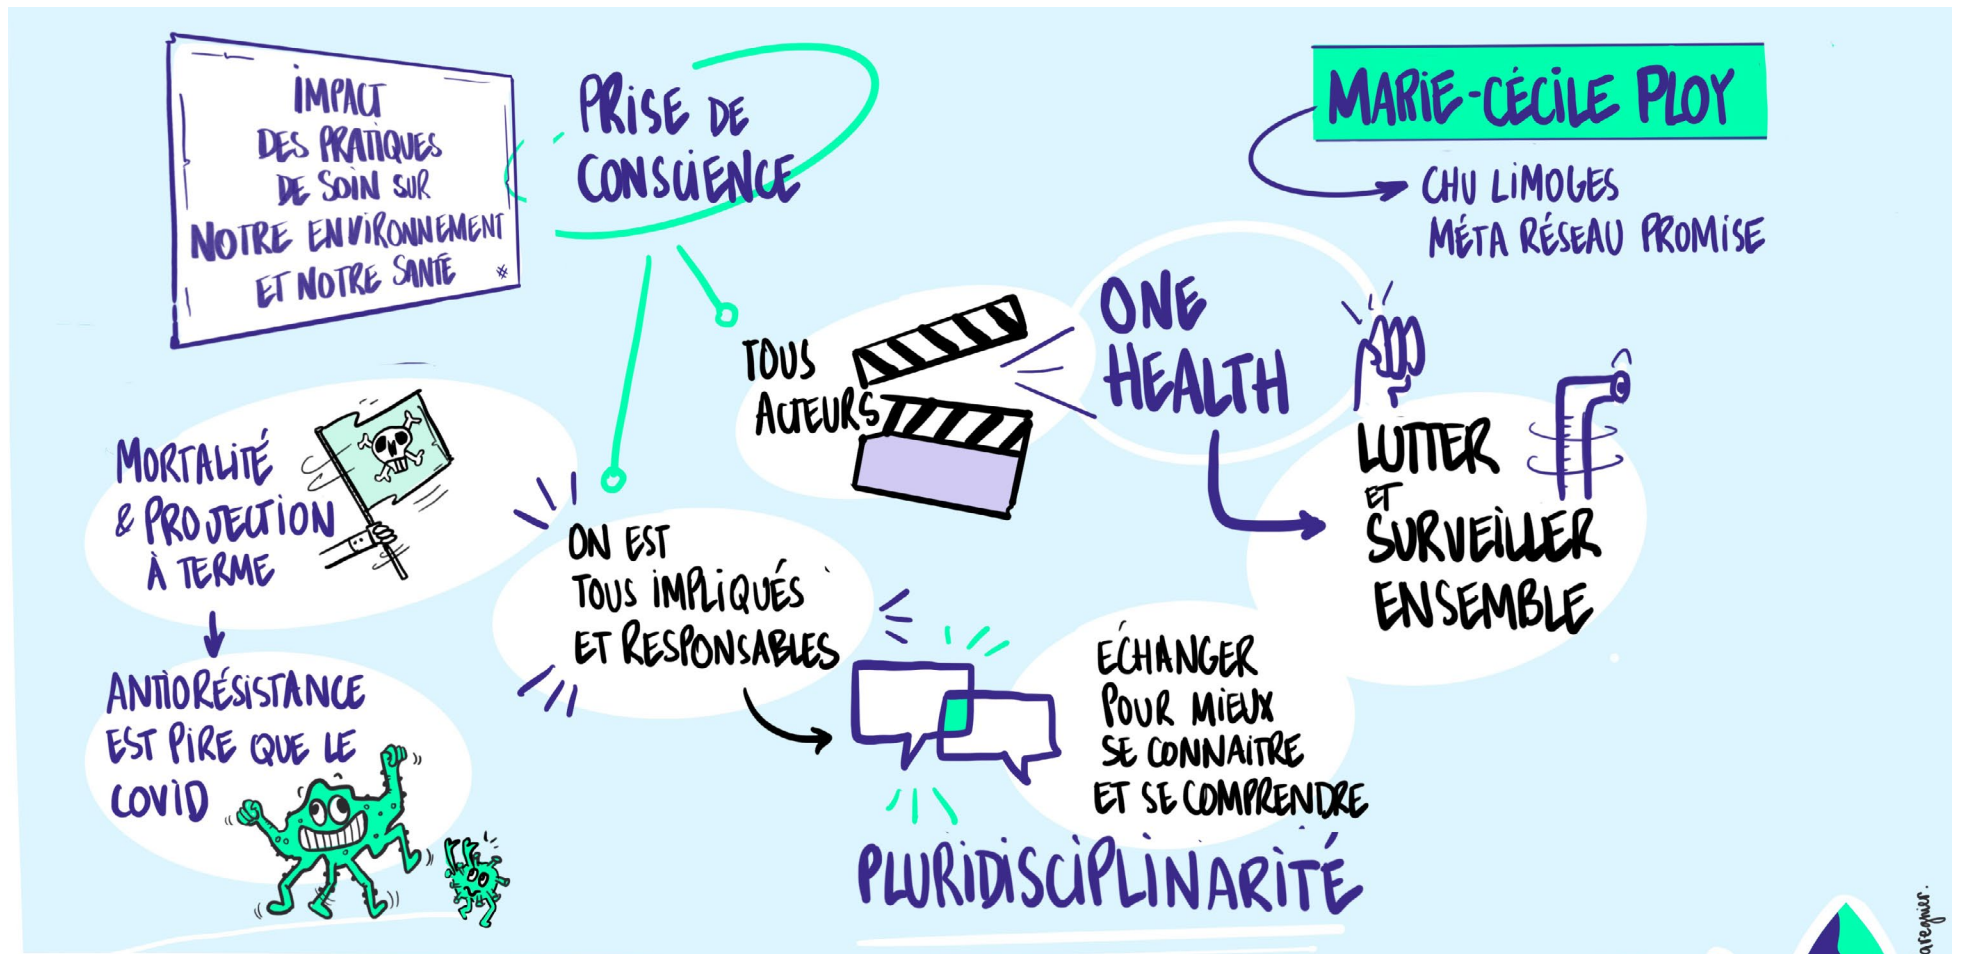 IMPACT
DES PRATIQUES
DE SOIN SUR
NOTRE ENVIRONNEMENT
ET NOTRE SANTÉ
PRISE DE
CONSCIENCE
MARIE-CÉCILE PLOY
CHU LIMOGES
MÉTA RÉSEAU PROMISE
TOUS
ACTEURS
ONE
HEALTH
LUTTER
ET
SURVEILLER
ENSEMBLE
MORTALITÉ
& PROJECTION
À TERME
ANTIORÉSISTANCE
EST PIRE QUE LE
COVID
ON EST
TOUS IMPLIQUÉS
ET RESPONSABLES
ÉCHANGER
POUR MIEUX
SE CONNAITRE
ET SE COMPRENDRE
PLURIDISCIPLINARITÉ
aregnier.